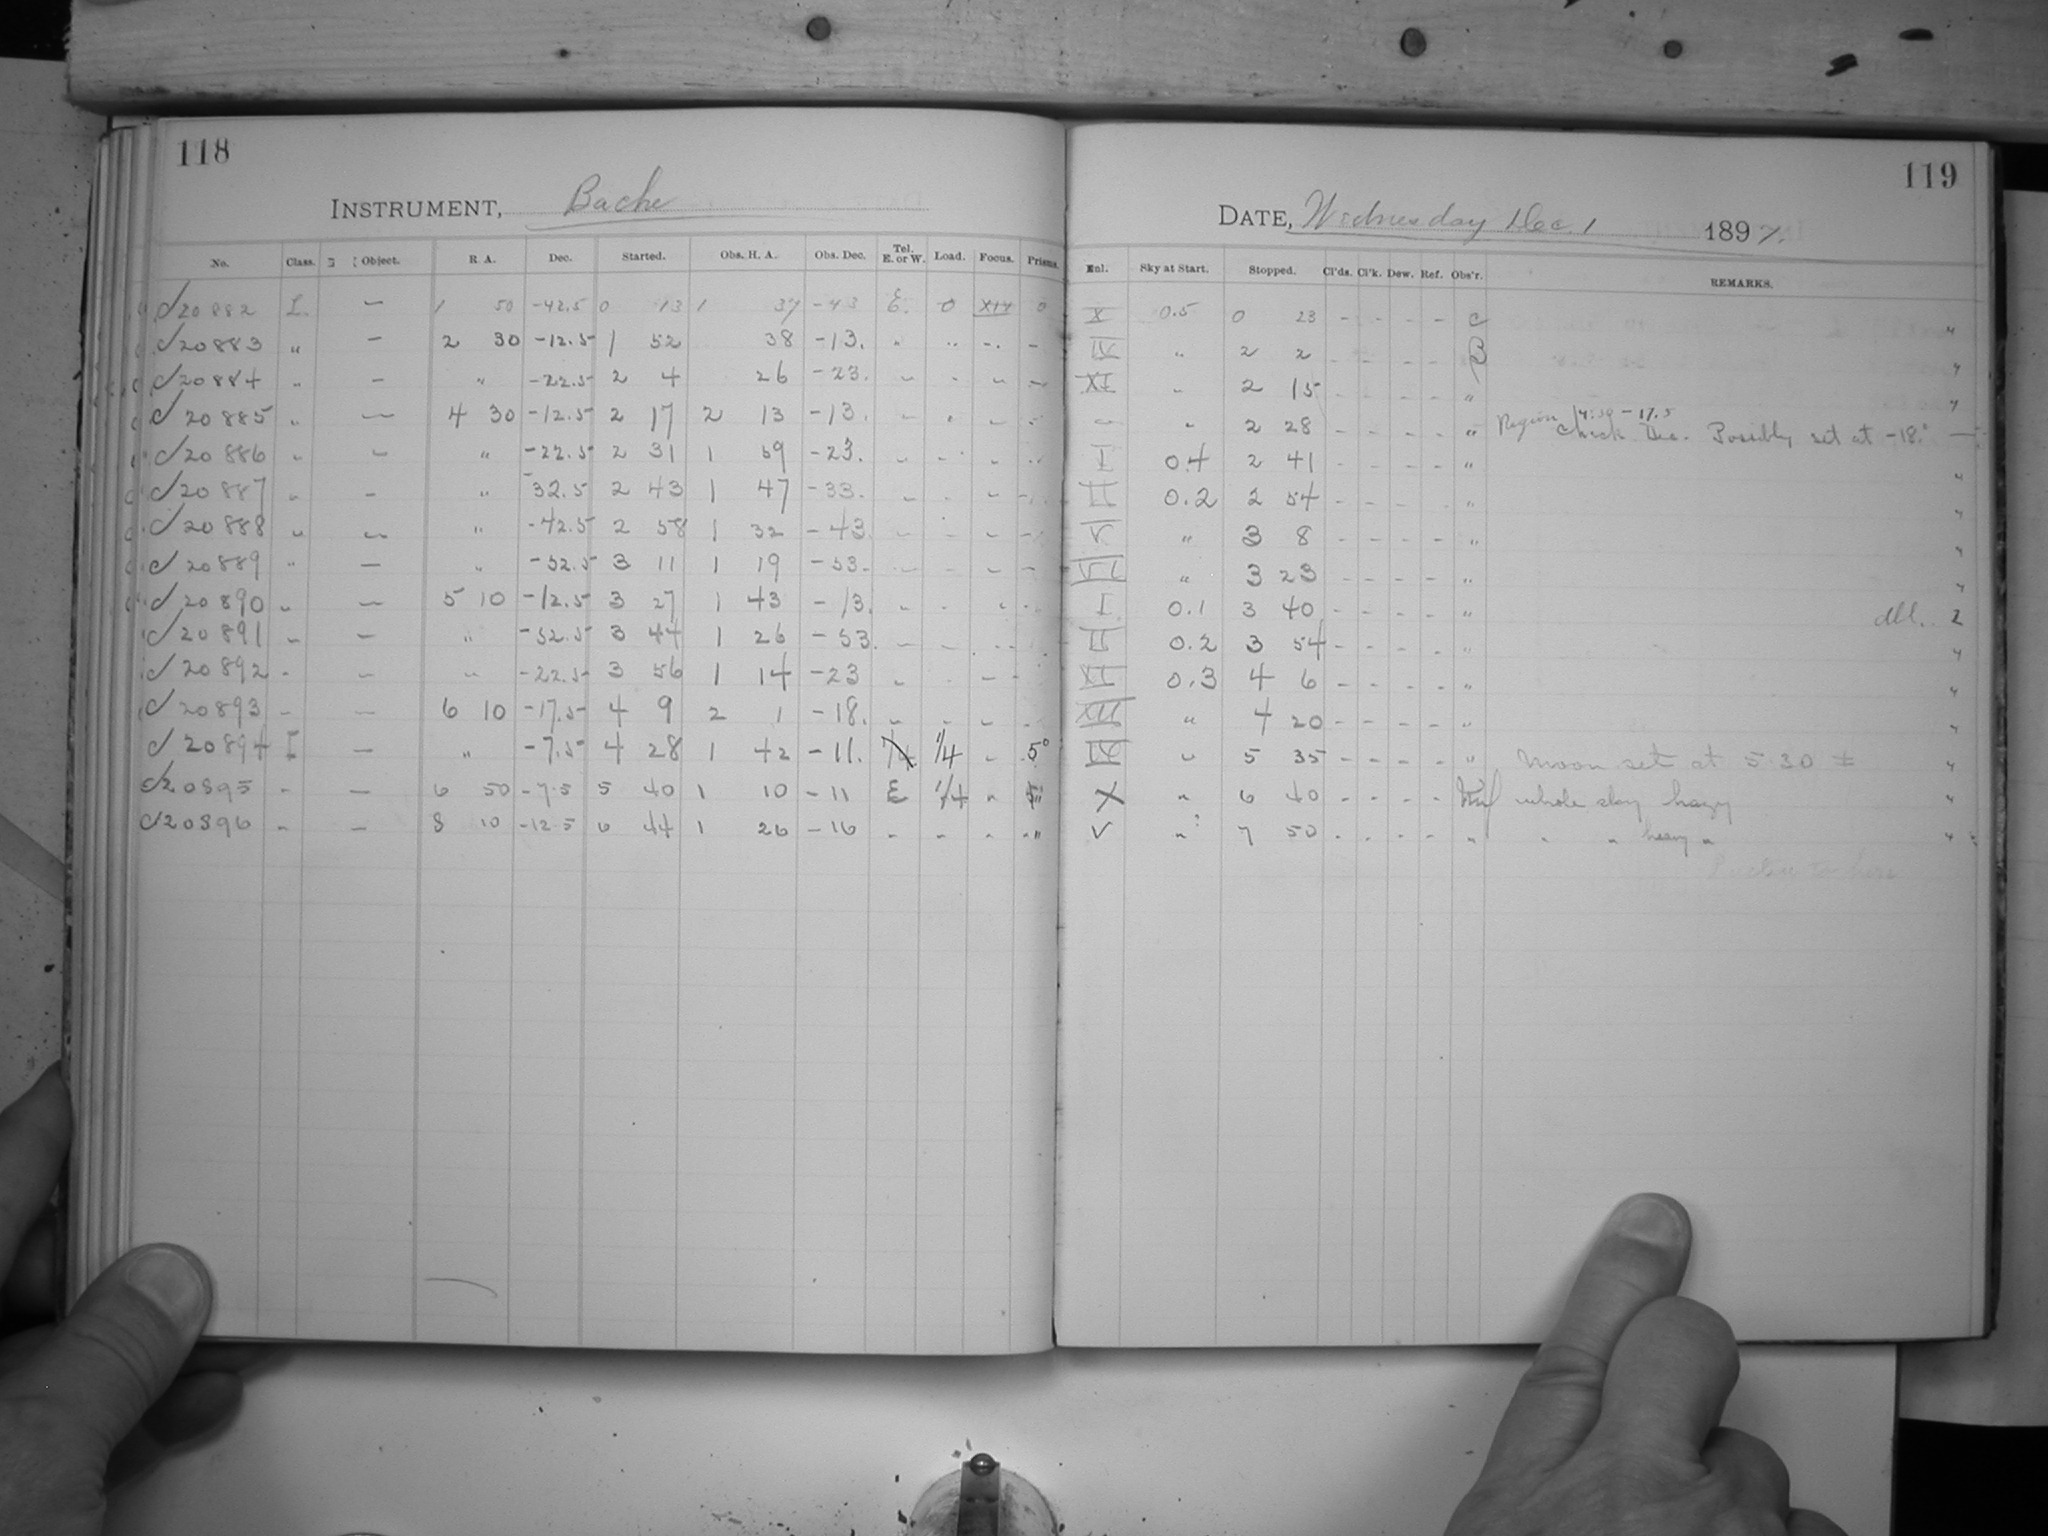 118
INSTRUMENT, Bache
No. Class. Object. R. A. Dec. Started. Obs. H. A. Obs. Dec. Tel. E. or W. Load. Focus. Prisms.
20882 L. — 1 50 -42.5 0 13 1 37 -43 E. 0 XIV 0
20883 " — 2 30 -12.5 1 52 38 -13. " " - -
20884 " — " -22.5 2 4 26 -23. - - - -
20885 " — 4 30 -12.5 2 17 2 13 -13. - - - -
20886 " — " -22.5 2 31 1 59 -23. - - - -
20887 " — " -32.5 2 43 1 47 -33. - - - -
20888 " — " -42.5 2 58 1 32 -43 - - - -
20889 " — " -52.5 3 11 1 19 -53. - - - -
20890 " — 5 10 -12.5 3 27 1 43 -13. - - - -
20891 " — " -52.5 3 44 1 26 -53. - - - -
20892 - — " -22.5 3 56 1 14 -23 - - - -
20893 - — 6 10 -17.5 4 9 2 1 -18. - - - -
20894 I — " -7.5 4 28 1 42 -11. 1/4 - 5°
20895 - — 6 50 -7.5 5 40 1 10 -11 E 1/4 " "
20896 - — 8 10 -12.5 6 44 1 26 -16 " " " "
119
DATE, Wednesday Dec. 1 1897.
Enl. Sky at Start. Stopped. Cl'ds. Cl'k. Dew. Ref. Obs'r. REMARKS.
X 0.5 0 23 - - - - C
IX " 2 2 - - - - B
XI " 2 15 - - - - "
- " 2 28 - - - - " Region 4:30 -17.5
Check Dec. Possibly set at -18.°
I 0.4 2 41 - - - - "
II 0.2 2 54 - - - - "
V " 3 8 - - - - "
VI " 3 23 - - - - "
I 0.1 3 40 - - - - " 2
II 0.2 3 54 - - - - "
XI 0.3 4 6 - - - - "
XII " 4 20 - - - - "
IX " 5 35 - - - - " Moon set at 5.30 ±
X " 6 40 - - - - whole sky hazy
V " 7 50 - - - - " " " heavy "